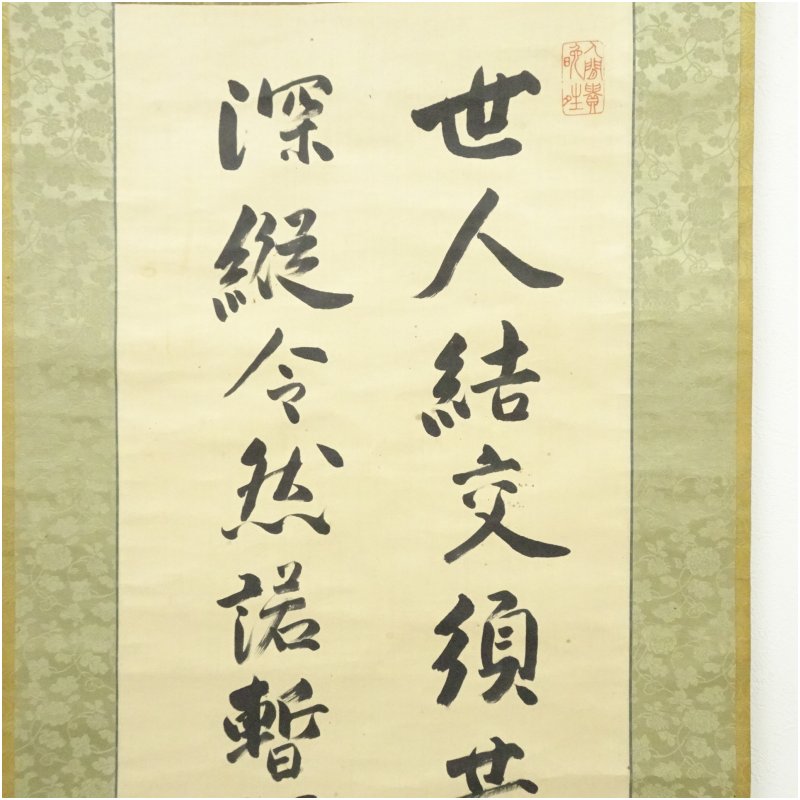 世人結交須黄
深縦令然諾暫